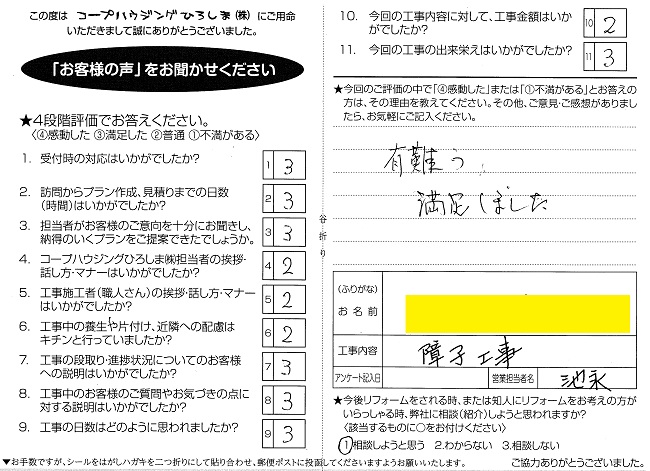 この度は コープハウジングひろしま(株) にご用命
いただきまして誠にありがとうございました。
「お客様の声」をお聞かせください
★4段階評価でお答えください。
〈④感動した ③満足した ②普通 ①不満がある〉
1. 受付時の対応はいかがでしたか? 1 3
2. 訪問からプラン作成、見積りまでの日数
(時間)はいかがでしたか? 2 3
3. 担当者がお客様のご意向を十分にお聞きし、
納得のいくプランをご提案できたでしょうか。 3 3
4. コープハウジングひろしま㈱担当者の挨拶・
話し方・マナーはいかがでしたか? 4 2
5. 工事施工者(職人さん)の挨拶・話し方・マナー
はいかがでしたか? 5 2
6. 工事中の養生や片付け、近隣への配慮は
キチンと行っていましたか? 6 2
7. 工事の段取り・進捗状況についてのお客様
への説明はいかがでしたか? 7 3
8. 工事中のお客様のご質問やお気づきの点に
対する説明はいかがでしたか? 8 3
9. 工事の日数はどのように思われましたか? 9 3
谷折り
10. 今回の工事内容に対して、工事金額はいか
がでしたか? 10 2
11. 今回の工事の出来栄えはいかがでしたか? 11 3
★今回のご評価の中で「④感動した」または「①不満がある」とお答えの
方は、その理由を教えてください。その他、ご意見・ご感想がありまし
たら、お気軽にご記入ください。
有難う
満足しました
(ふりがな)
お名前
工事内容 障子工事
アンケート記入日 営業担当者名 池永
★今後リフォームをされる時、または知人にリフォームをお考えの方が
いらっしゃる時、弊社に相談(紹介)しようと思われますか?
〈該当するものに○をお付けください〉
①相談しようと思う 2.わからない 3.相談しない
▼お手数ですが、シールをはがしハガキを二つ折りにして貼り合わせ、郵便ポストに投函してくださいますようお願いいたします。 ご協力ありがとうございました。